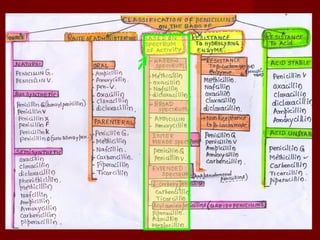 CLASSIFICATION OF PENICILLINS
ON THE BASIS OF
SOURCE
ROUTE OF ADMINISTRATION
BASED ON
SPECTRUM
OF ACTIVITY
RESISTANCE
TO HYDROLYSING
ENZYME
RESISTANCE
To Acid
NATURAL
Penicillin G.
Penicillin V.
Biosynthetic
Penicillin V
Penicillin X
Penicillin F
Penicillin K
Semisynthetic
oxacillin
cloxacillin
dicloxacillin
Phenethicillin
Methicillin
Nafcillin
Ampicillin
Amoxycillin
Carbenicillin
Piperacillin
ORAL
Ampicillin
Amoxycillin
Pen-V
Oxacillin
Cloxacillin
dicloxacillin
PARENTERAL
Penicillin G.
Methicillin
Nafcillin
Carbenicillin
Piperacillin
Ticarcillin
NARROW
SPECTRUM
Methicillin
oxacillin
Nafcillin
cloxacillin
dicloxacillin
BROAD
SPECTRUM
Ampicillin
Amoxycillin
INTER
MEDIATE SPECTRUM
Penicillin G
Penicillin V
EXTENDED
SPECTRUM
Carbenicillin
Ticarcillin
Piperacillin
Azlocillin
Mezlocillin
RESISTANCE
Enzyme
Methicillin
Nafcillin
oxacillin
cloxacillin
dicloxacillin
Penicillin G
Penicillin V
Amoxycillin
Ampicillin
Carbenicillin
ACID STABLE
Penicillin V
oxacillin
cloxacillin
dicloxacillin
Ampicillin
Amoxycillin
ACID UNSTABLE
Penicillin G
Methicillin
Ticarcillin
Piperacillin